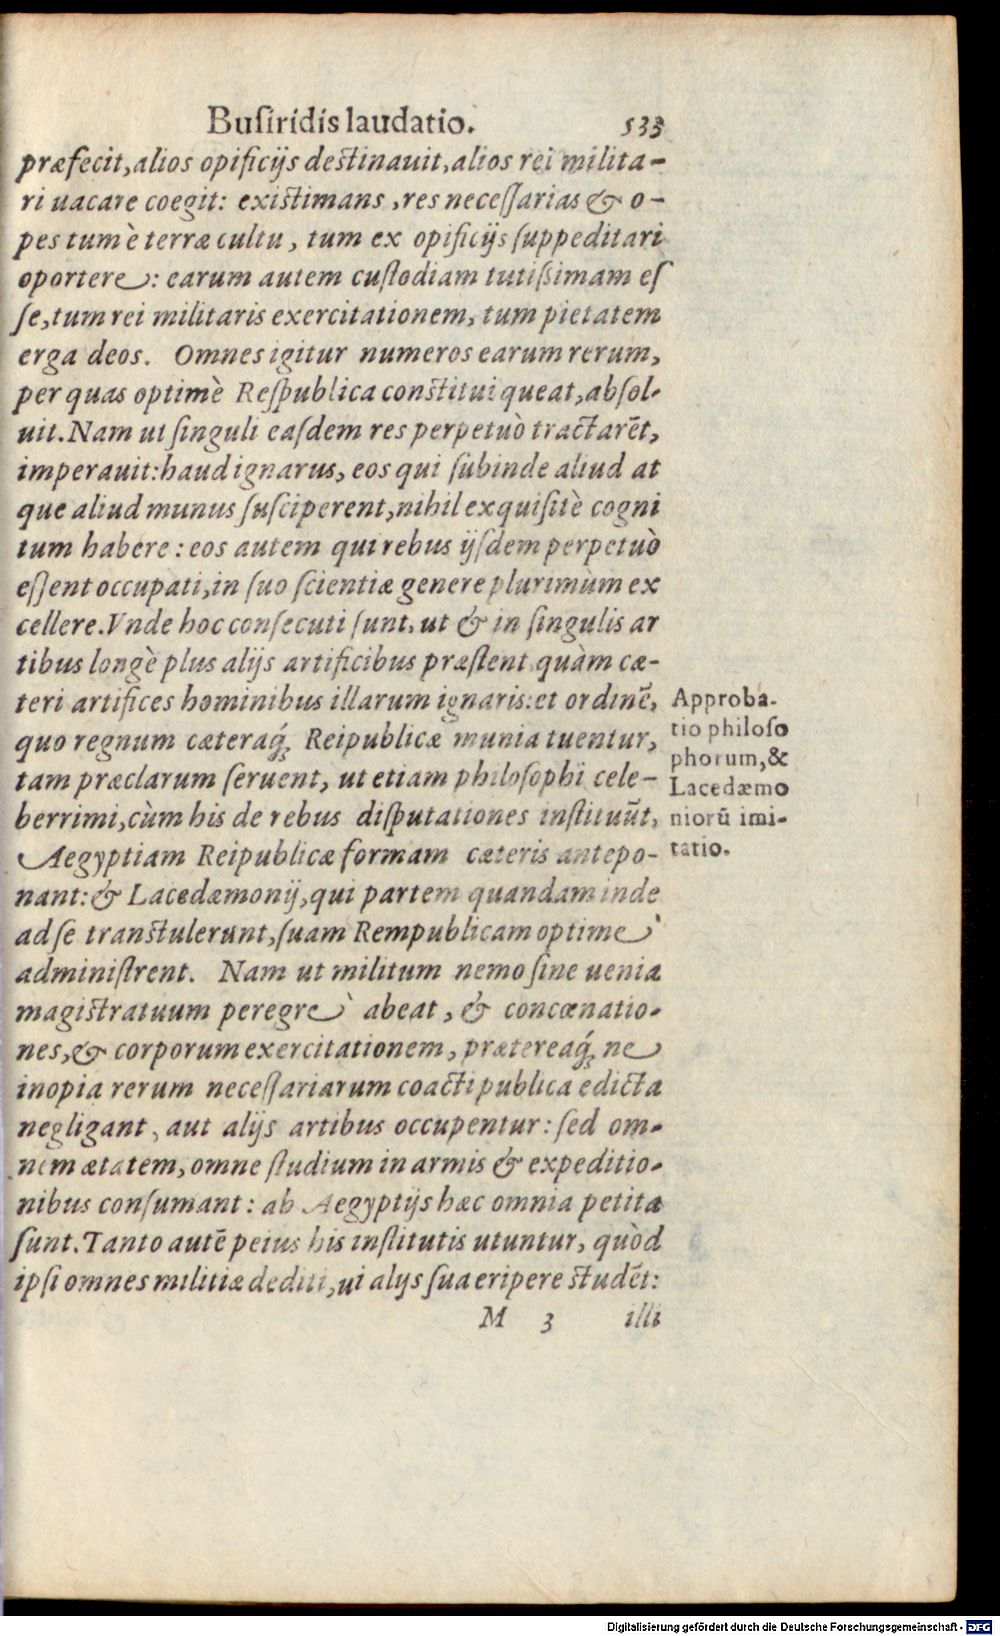 Buſiridis laudatio. 533
præfecit, alios opificijs deſtinauit, alios rei milita-
ri uacare coegit: exiſtimans, res neceſſarias & o-
pes tum è terræ cultu, tum ex opificijs ſuppeditari
oportere: earum autem cuſtodiam tutiſsimam eſ
ſe, tum rei militaris exercitationem, tum pietatem
erga deos. Omnes igitur numeros earum rerum,
per quas optimè Reſpublica conſtitui queat, abſol-
uit. Nam ut ſinguli eaſdem res perpetuò tractarēt,
imperauit: haud ignarus, eos qui ſubinde aliud at
que aliud munus ſuſciperent, nihil exquiſitè cogni
tum habere: eos autem qui rebus ijſdem perpetuò
eſſent occupati, in ſuo ſcientiæ genere plurimùm ex
cellere. Vnde hoc conſecuti ſunt, ut & in ſingulis ar
tibus longè plus alijs artificibus præſtent, quàm cæ-
teri artifices hominibus illarum ignaris: et ordinē,
quo regnum cæteraq́; Reipublicæ munia tuentur,
tam præclarum ſeruent, ut etiam philoſophi cele-
berrimi, cùm his de rebus diſputationes inſtituūt,
Aegyptiam Reipublicæ formam cæteris antepo-
nant: & Lacedæmonij, qui partem quandam inde
ad ſe tranſtulerunt, ſuam Rempublicam optimè
adminiſtrent. Nam ut militum nemo ſine uenia
magiſtratuum peregrè abeat, & concœnatio-
nes, & corporum exercitationem, prætereaq́; ne
inopia rerum neceſſariarum coacti publica edicta
negligant, aut alijs artibus occupentur: ſed om-
nem ætatem, omne ſtudium in armis & expeditio-
nibus conſumant: ab Aegyptijs hæc omnia petita
ſunt. Tanto autē peius his inſtitutis utuntur, quòd
ipſi omnes militiæ dediti, ui alijs ſua eripere ſtudēt:
M 3 illi
Approba-
tio philoſo
phorum, &
Lacedæmo
niorū imi-
tatio.
Digitalisierung gefördert durch die Deutsche Forschungsgemeinschaft - DFG